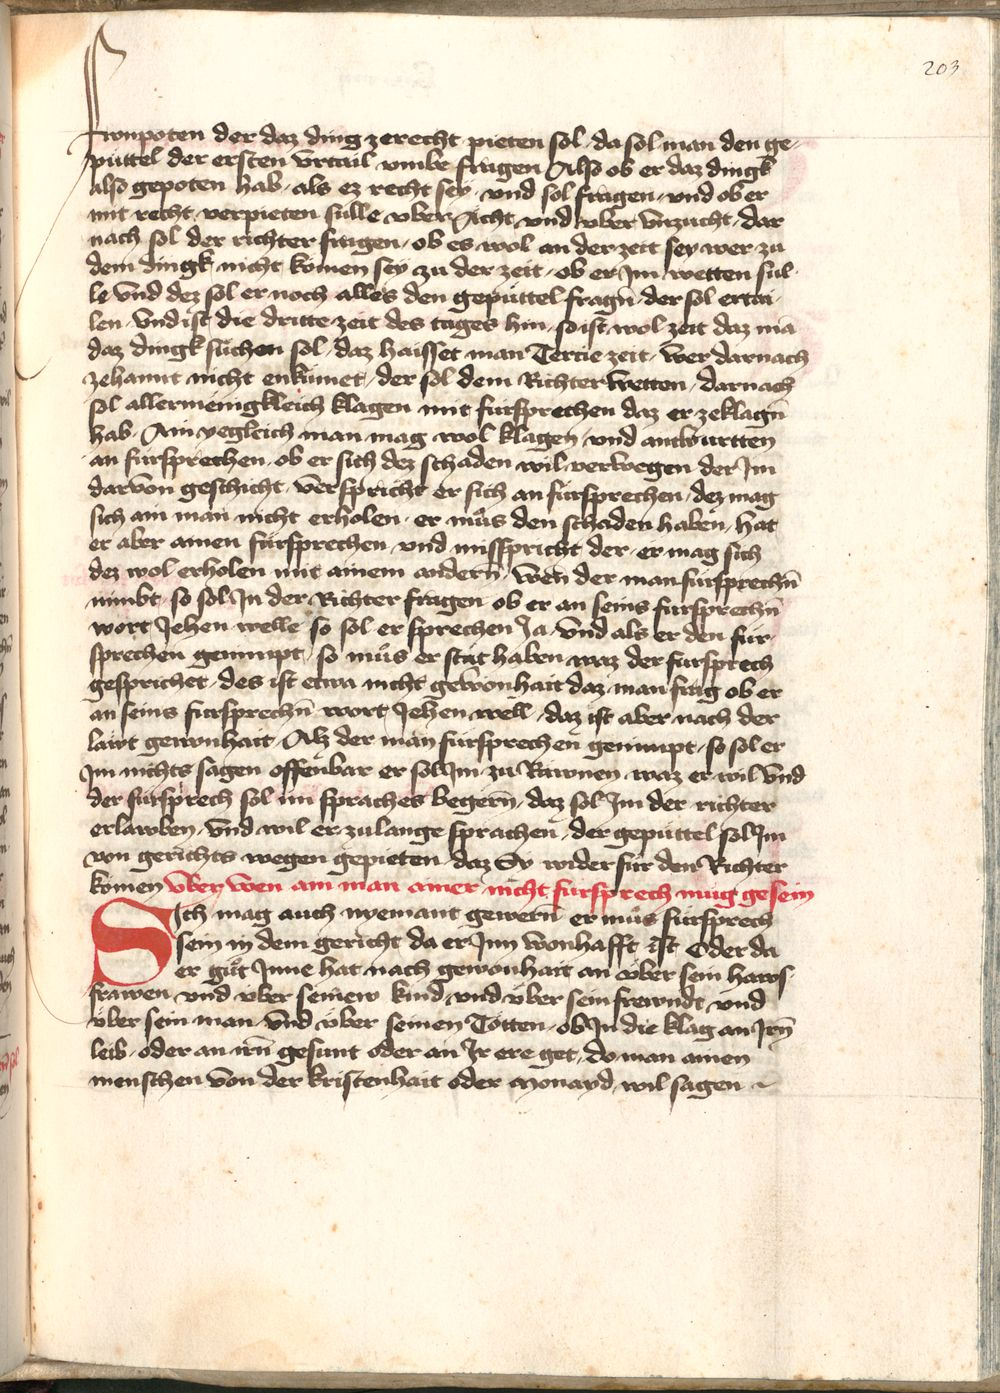 203
fronpoten der daz ding zerecht pieten sol · da sol man den ge-
püttel der ersten vrtail vmbe fragen Also ob er daz dingk
also gepoten hab · als ez recht sey · vnd sol fragen · vnd ob er
mit recht verpieten sulle vber Acht vnd vber vnzucht · dar
nach sol der richter fragen · ob es wol an der zeit sey wer zu
dem dingk nicht komen sey zu der zeit · ob er Jm wetten sul-
le vnd dez sol er noch alles den gepüttel fragn̄ · der sol ertai-
len · Vnd ist die dritte zeit des tages hin · so ist wol zeit daz mā
daz dingk suchen sol · daz haisset man Tercie zeit · wer darnach
zehannt nicht enkumet · der sol dem Richter wetten · darnach
sol allermenigkleich klagen mit fursprechen daz er zeklagn̄
hab · Ain yegleich man mag wol klagen vnd antwurtten
an fursprechen · ob er sich dez schaden wil verwegen der Jm
darvon geschicht · Verspricht er sich an fürsprechen · dez mag
sich ain man nicht erholen · er müs den schaden haben · hat
er aber ainen fürsprechen · vnd misspricht der · er mag sich
dez wol erholen mit ainem andern̄ · Wen der man fursprechn̄
nimbt · so sol Jn der Richter fragen ob er an seins fursprechn̄
wort Jehen welle so sol er sprechen Ja · vnd als er den für-
sprechen genimpt · so müs er stät haben waz der fursprech
gesprichet · des ist etwa nicht gewonhait daz man frag ob er
an seins fursprechn̄ wort Jehen well · daz ist aber nach der
lawt gewonhait · Alz der man fürsprechen genimpt · so sol er
Jm nichts sagen offenbar er sol Jm zu Rawnen waz er wil vnd
der fürsprech sol im spraches begern̄ · daz sol Jm der richter
erlawben · vnd wil er zulange sprachen · der gepüttel sol Jm
von gerichts wegen gepieten · daz Sy wider für den Richter
komen Vber wen ain man ainer nicht fursprech mug gesein
Sich mag auch nyemant gewern̄ er müs fürsprech
sein in dem gericht da er Jnn wonhafft ist Oder da
er gůt Jnne hat nach gewonhait an über sein haws-
frawen vnd über seinew kind vnd über sein frewndt vnd
über sein man vnd über seinen Totten · ob Jn die klag an Jrn̄
leib · oder an irn̄ gesunt oder an Jr ere get · do man ainen
menschen von der kristenhait oder monayd wil sagen ~